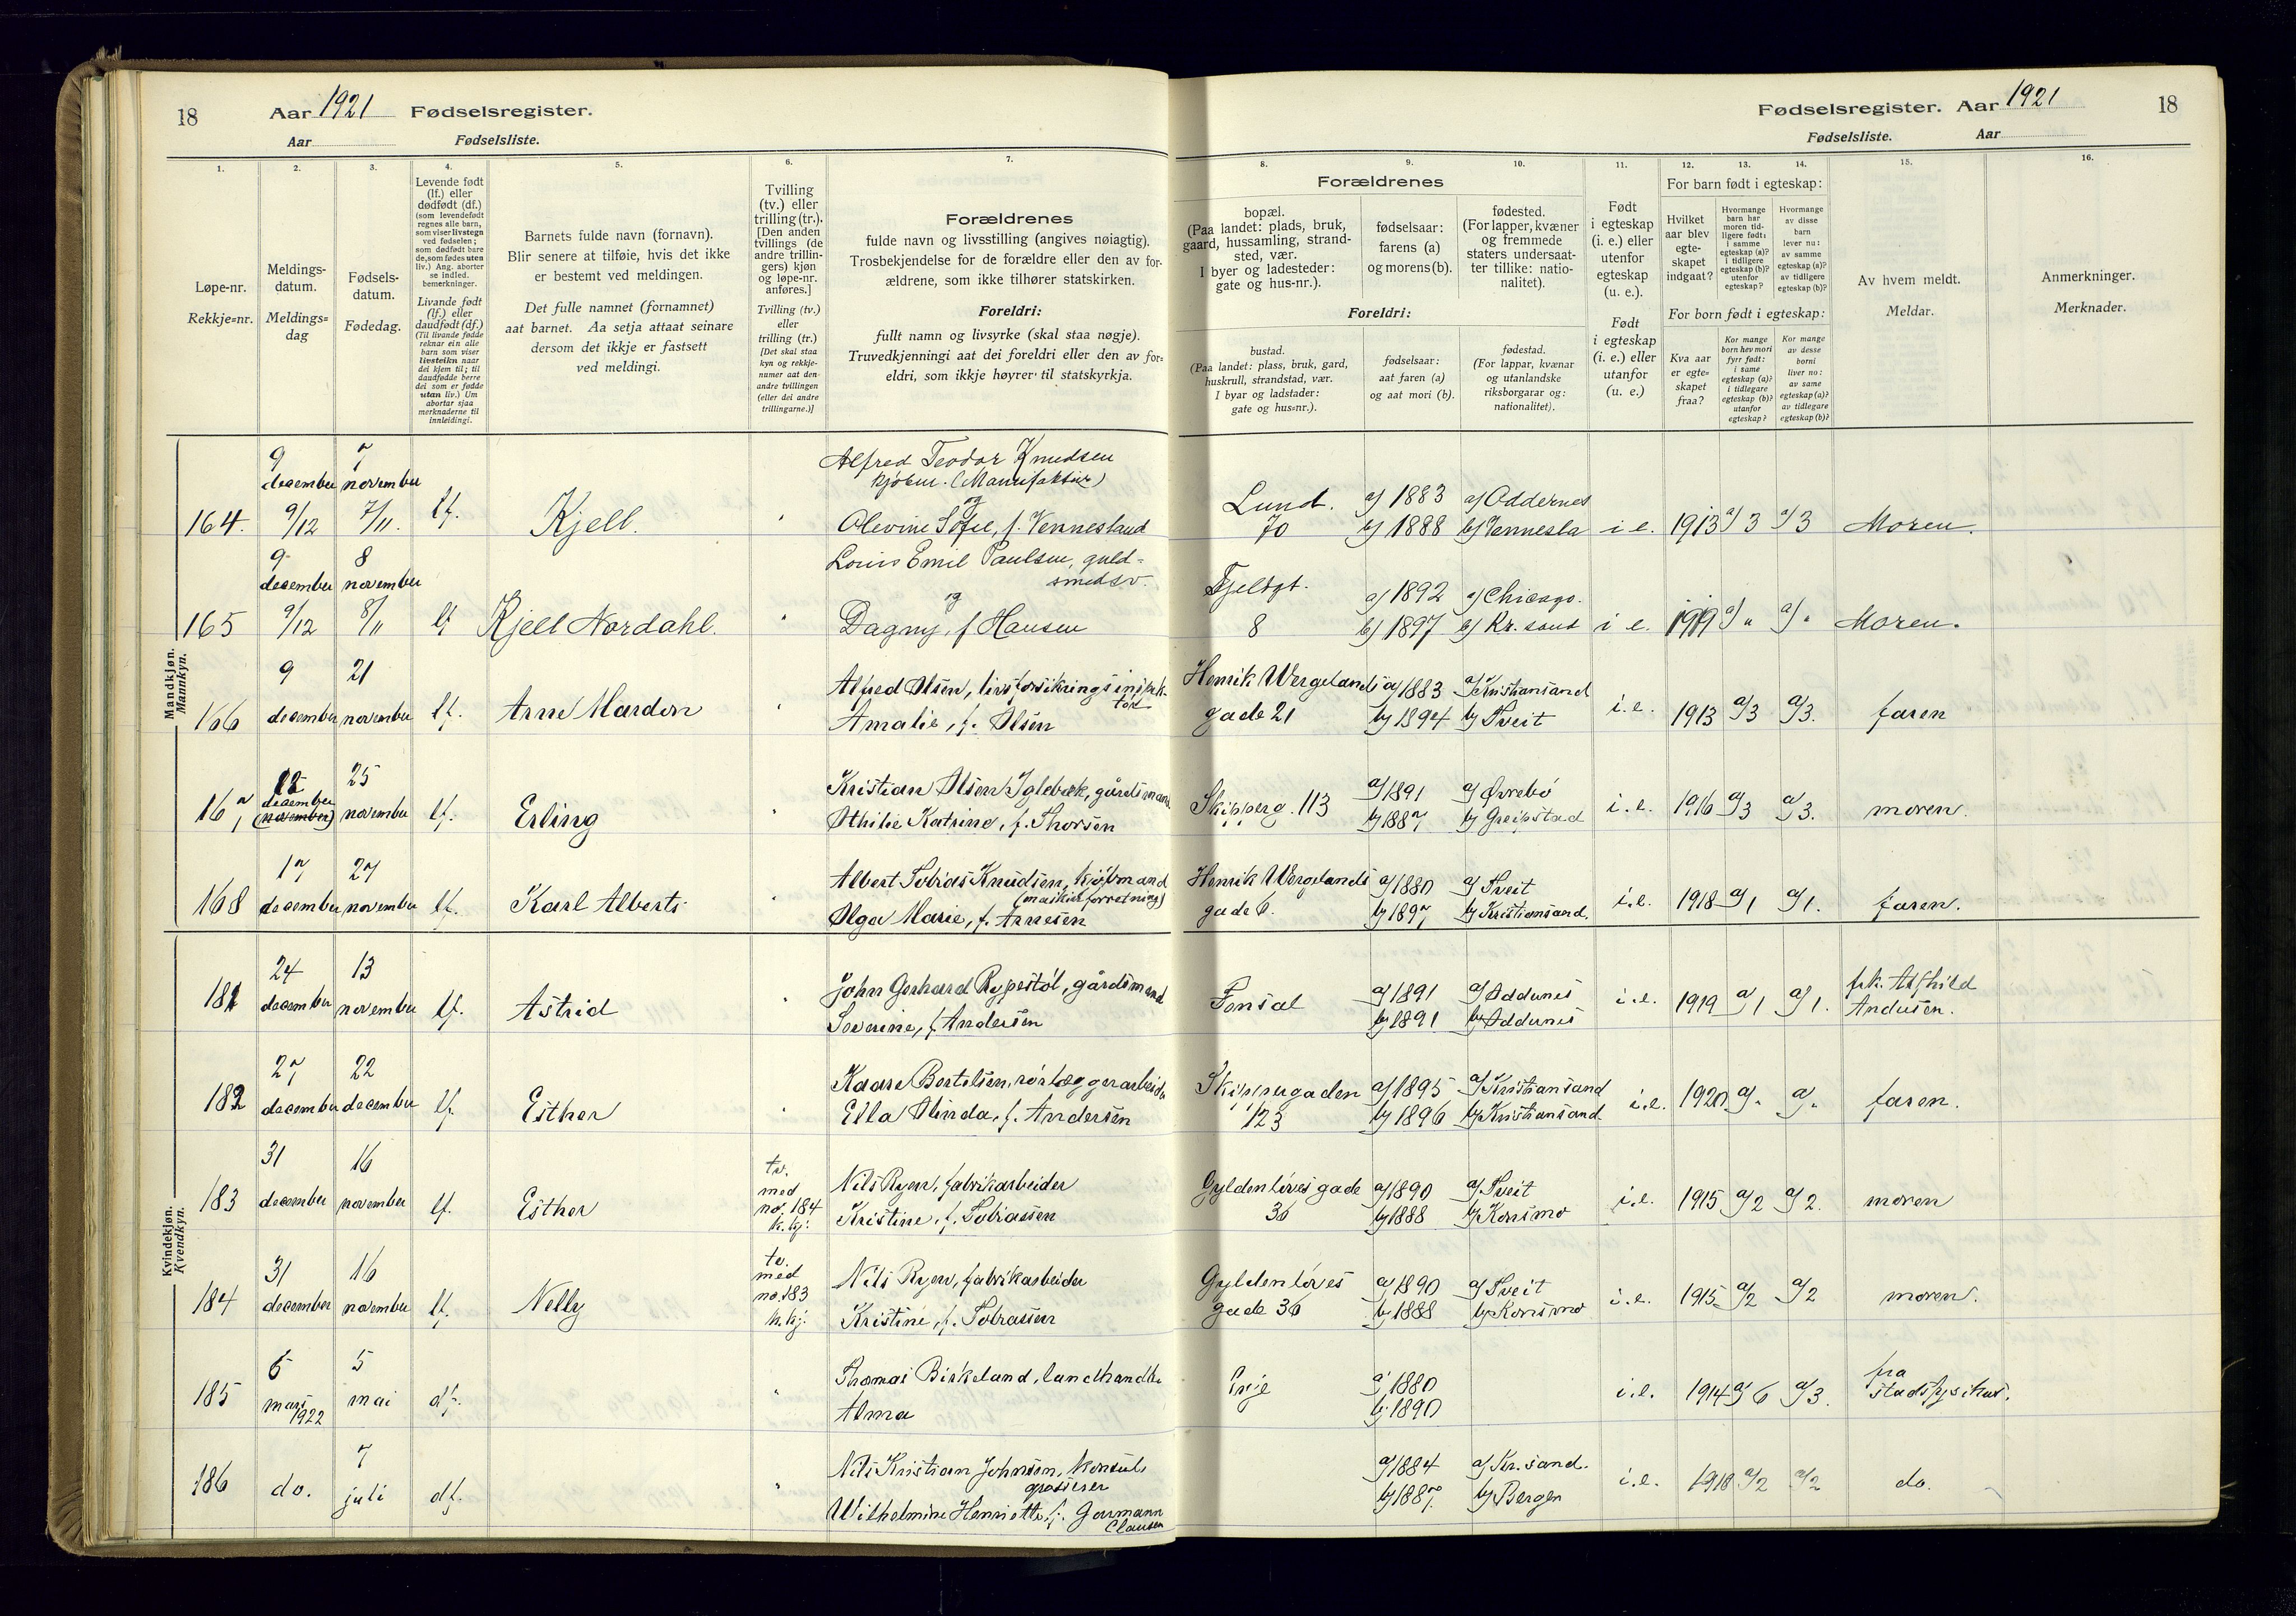 18 Aar 1921 Fødselsregister.
Aar Fødselsliste.
Fødselsregister. Aar 1921 18
Fødselsliste. Aar
1. 2. 3. 4. 5. 6. 7. 8. 9. 10. 11. 12. 13. 14. 15. 16.
Løpe-nr.
Rekkje=nr.
Meldings-
datum.
Meldings=
dag
Fødsels-
datum.
Fødedag.
Levende født
(lf.) eller
dødfødt (df.)
(som levendefødt
regnes alle barn,
som viser livstegn
ved fødselen;
som dødfødt bare
de, som fødes uten
liv.) Ang. aborter
se indled.
bemerkninger.
Livande født
(lf.) eller
daudfødt (df.)
(Til livande fødde
reknar ein alle
barn som viser
livsteikn naar
dei kjem til; til
daudfødde berre
dei som er fødde
utan liv.) Um
abortar sjaa
merknaderne til
innleidingi.
Barnets fulde navn (fornavn).
Blir senere at tilføie, hvis det ikke
er bestemt ved meldingen.
Det fulle namnet (fornamnet)
aat barnet. Aa setja attaat seinare
dersom det ikkje er fastsett
ved meldingi.
Tvilling
(tv.) eller
trilling (tr.).
[Den anden
tvillings (de
andre trillin-
gers) kjøn
og løpe-nr.
anføres.]
Tvilling (tv.)
eller
trilling (tr.)
[Det skal staa
kyn og rekkje-
numer aat den
andre tvillingen
(eller dei andre
trillingarne.)]
Forældrenes
fulde navn og livsstilling (angives nøiagtig).
Trosbekjendelse for de forældre eller den av for-
ældrene, som ikke tilhører statskirken.
Foreldri:
fullt namn og livsyrke (skal staa nøgje).
Truvedkjenningi aat dei foreldri eller den av for=
eldri, som ikkje høyrer til statskyrkja.
Forældrenes
bopæl.
(Paa landet: plads, bruk,
gaard, hussamling, strand-
sted, vær.
I byer og ladesteder:
gate og hus-nr.).
fødselsaar:
farens (a)
og morens (b).
fødested.
(For lapper, kvæner
og fremmede
staters undersaat-
ter tillike: natio-
nalitet).
Foreldri:
bustad.
(Paa landet: plass, bruk, gard,
huskrull, strandstad, vær.
I byar og ladstader:
gate og hus=nr.).
fødselsaar:
aat faren (a)
og aat mori (b).
fødestad.
(For lappar, kvænar
og utanlandske
riksborgarar og:
nationalitet).
Født
i egteskap
(i. e.) eller
utenfor
egteskap
(u. e.).
Født
i egteskap
(i. e.) eller
utanfor
(u. e.)
For barn født i egteskap:
Hvilket
aar blev
egte-
skapet
indgaat?
Hvormange
barn har
moren tid-
ligere født:
i samme
egteskap (a)?
i tidligere
egteskap (b)?
utenfor
egteskap?
Hvormange
av disse
barn
lever nu:
av samme
egteskap (a)?
av tidligere
egteskap (b)?
For born født i egteskap:
Kva aar
er egte=
skapet
fraa?
Kor mange
born hev mori
fyrr født:
i same
egteskap (a)?
i tidlegare
egteskap (b)?
utanfor
egteskap?
Kor mange
av desse
borni
liver no:
av same
egteskap (a)?
av tidlegare
egteskap (b)?
Av hvem meldt.
Meldar.
Anmerkninger.
Merknader.
Mandkjøn.
Mannkyn.
9 7 Alfred Teodor Knudsen
december november kjøbm. (Manufaktur)
og
164. 9/12 7/11. lf. Kjell. Olevine Sofie, f. Vennesland
Lund. a) 1883 a) Oddernes
70 b) 1888 b) Vennesla i e. 1913 a) 3 a) 3 Moren.
9 8 Louis Emil Paulsen, guld=
december november smedsv.
og
165 9/12 8/11 lf Kjell Nordahl. Dagny, f Hansen
Fjeldgt. a) 1892 a) Chicago.
8 b) 1897 b) Kr. sand i e. 1919 a) " a) " Moren.
9 21 Alfred Olsen, livsforsikringsinspek-
tør
166 december november lf. Arne Mardon Amalie, f. Olsen
Henrik Wergelands a) 1883 a) Kristiansand
gade 21 b) 1894 b) Tveit i. e. 1913 a) 3 a) 3. faren
12 25 Kristian Olsen Iglebæk, gårdsmand
167 december (november) november lf. Erling Othilie Katrine, f. Thorsen
Skipperg. 113 a) 1891 a) Øvrebø
b) 1887 b) Greipstad i. e. 1916 a) 3 a) 3. moren.
17 27 Albert Tobias Knudsen, kjøbmand
168 december november lf. Karl Alberts Olga Marie, f. Arnesen
Henrik Wergelands a) 1880 a) Tveit
gade 6. b) 1897 b) Kristiansand. i. e. 1918 a) 1 a) 1. faren.
Kvindekjøn.
Kvendkyn.
24 13 John Gerhard Rypestöl, gårdsmand
181 december november lf. Astrid Severine, f. Andersen
Fonsal a) 1891 a) Oddernes
b) 1891 b) Oddernes i. e. 1919 a) 1 a) 1. frk. Alfhild
Andersen.
27 22 Kaare Bertelsen, rörlæggerarbeider
182 december december lf. Esther Ella Olinda, f. Andersen
Skippergaden a) 1895 a) Kristiansand
123 b) 1896 b) Kristiansand i. e. 1920 a) " a) " faren.
31 16 tv.
med Nils Ryen, fabrikarbeider
183 december november lf. Esther no. 184
k. kj. Kristine, f. Tobiassen
Gyldenlöves gade a) 1890 a) Tveit
36 b) 1888 b) Konsmo i. e. 1915 a) 2 a) 2. moren
31 16 tv.
med Nils Ryen, fabrikarbeider
184 december november lf. Nelly no. 183
k. kj. Kristine, f. Tobiassen
Gyldenlöves a) 1890 a) Tveit
gade 36 b) 1888 b) Konsmo i. e. 1915 a) 2 a) 2 moren.
6 5 Thomas Birkeland, landhandler
185 mars 1922 mai df. " Alma
Evje a) 1880
b) 1890 i. e. 1914 a) 6 a) 3. fra
stadsfysikus.
7 Nils Kristian Johnsen, konsul,
grosserer
186 do. juli df. " Wilhelmine Henriette, f. Garmann
Clausen
a) 1884 a) Kr. sand.
b) 1887. b) Bergen i. e. 1918 a) 2 a) 2 do.